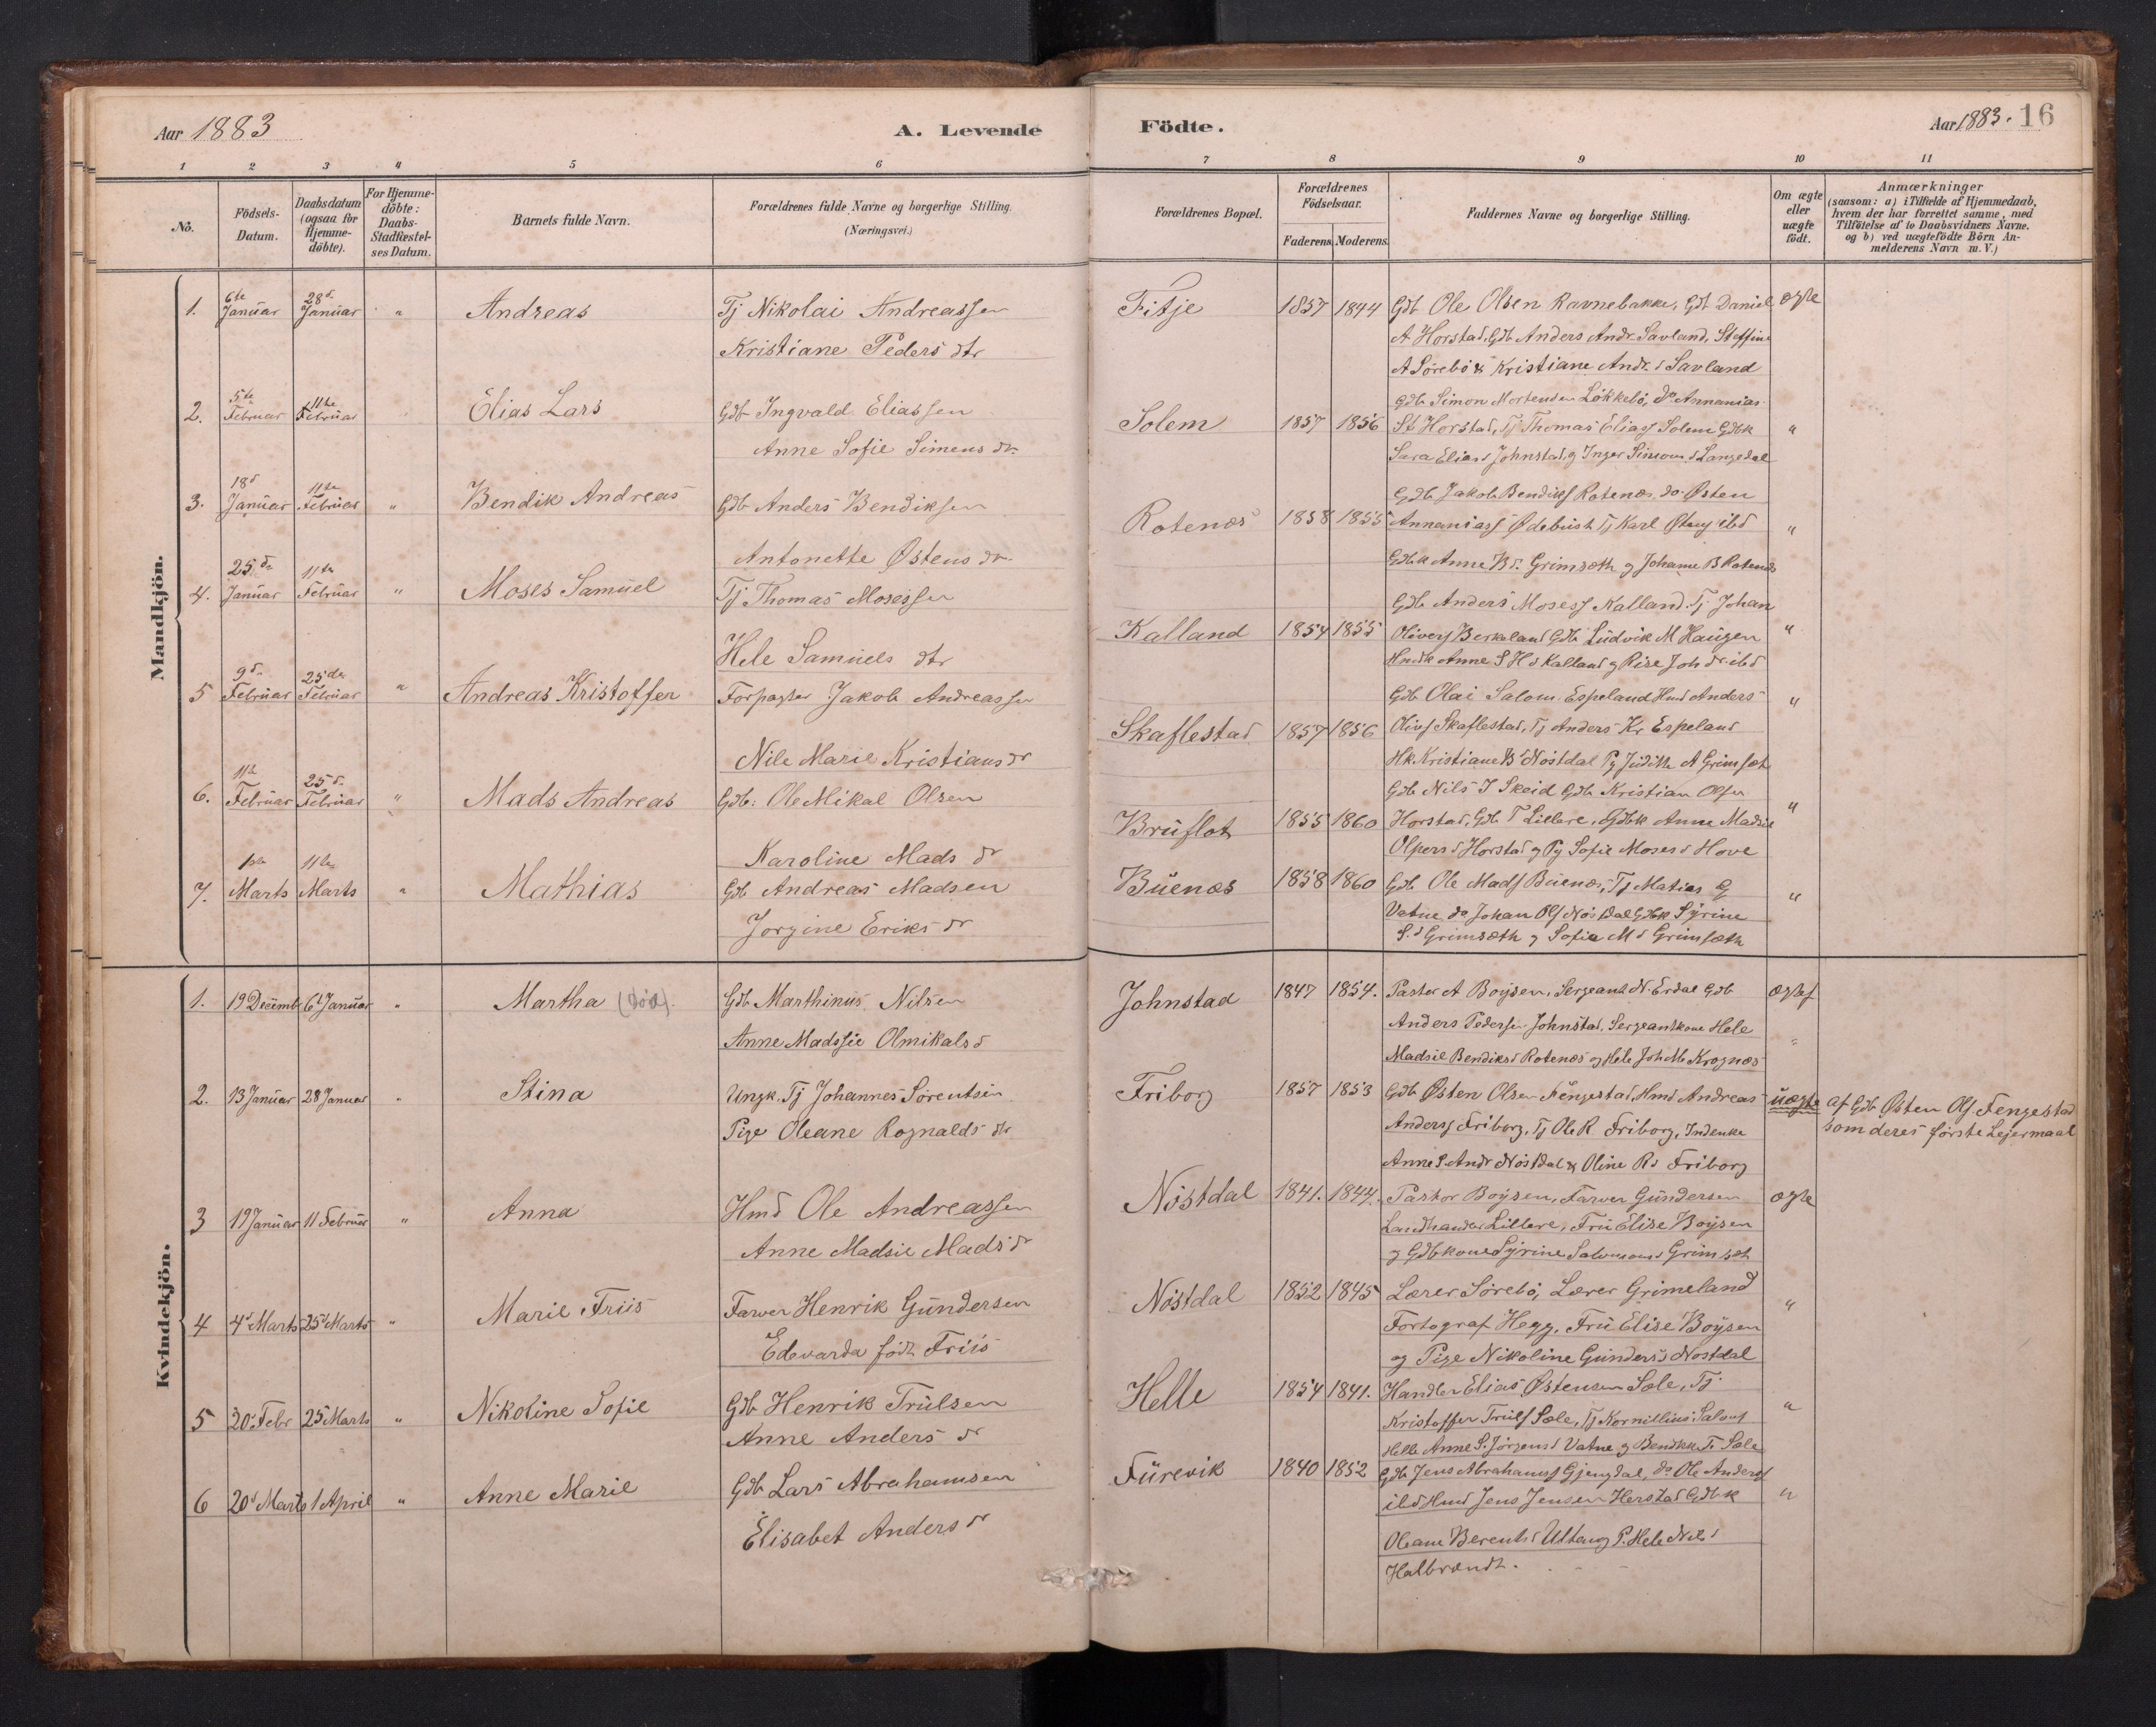 Aar 1883 A. Levende Födte. Aar 1883. 16
1 2 3 4 5 6 7 8 9 10 11
No. Födsels-Datum. Daabsdatum (ogsaa for Hjemme-döbte). For Hjemme-döbte: Daabs-Stadfæstel-ses Datum. Barnets fulde Navn. Forældrenes fulde Navne og borgerlige Stilling. (Næringsvei.) Forældrenes Bopæl. Forældrenes Födselsaar. Faderens. Moderens. Faddernes Navne og borgerlige Stilling. Om ægte eller uægte födt. Anmærkninger (saasom: a) i Tilfælde af Hjemmedaab, hvem der har forrettet samme, med Tilföielse af to Daabsvidners Navne. og b) ved uægtefödte Börn An-melderens Navn m. V.)
Mandkjön.
1. 6te Januar 28d. Januar " Andreas Tj Nikolai Andreassen Fitje 1857 1844 Gdb Ole Olsen Ravnebakke, Gdb Daniel ægte
Kristiane Peders dtr A Horstad, Gdb Anders Andr. Savland, Steffine
A Sörebö & Kristiane Andr. d Savland
2. 5te Februar 11te Februar " Elias Lars Gdb Ingvald Eliassen Solem 1857 1856 Gdb Simon Mortensen Lökkebö, do Annanias
Anne Sofie Simens dr. St Horstad, Tj Thomas Eliass Solem Gdbk "
Sara Elias d Johnstad, g Inger Simons d Langedal
3. 18d Januar 11te Februar " Bendik Andreas Gdb Anders Bendiksen Rotenæs 1858 1855 Gdb Jakob Bendiks Rotenæs, do. Østen
Antonette Østens dr. Annaniass Ødebust Tj Karl Østens ibd "
Gdbk Anne B d. Grimsæth g Johanne B Rotenæs
4. 25.de Januar 11te Februar " Moses Samuel Tj Thomas Mosessen Kalland 1854 1855 Gdb Anders Moses Kalland. Tj Johan
Hele Samuels dtr Olivers Berkeland Gdb Ludvik M Haugen "
Hmdk Anne S H d Kalland g Rise Joh dr. ibd
5 9d. Februar 25de Februar " Andreas Kristoffer Forpagter Jakob Andreassen Skaflestad 1857 1856 Gdb Olai Salom. Espeland Hmd Anders "
Nile Marie Kristians dr Olivs Skaflestad, Tj Anders Kr Espeland
Hk. Kristiane B d Nöstdal Pg Judithe A Grimsæt
6. 11te Februar 25d. Februar " Mads Andreas Gdb: Ole Mikal Olsen Bruflot 1855 1860 Gdb Nils J Skeid Gdb Kristian Olsen
Karoline Mads dr Horstad, Gdb T Lillere, Gdbk Anne Madsie "
Olpers d Horstad g Pg Sofie Moses d Hove
7. 1ste Marts 11te Marts " Mathias Gdb Andreas Madsen Buenæs 1858 1860 Gdb Ole Mads Buenæs, Tj Matias G
Jorgine Eriks dr Vatne do Johan Ols Nösdal Gdbk Syrine "
S. d Grimsæth g Sofie M d Grimsæth
Kvindekjön.
1. 19 Decembr 6t Januar " Martha (död). Gdb Marthinus Nilsen Johnstad 1847 1854. Pastor A Boysen, Sergeant N. Erdal Gdb ægtef
Anne Madssie Olmikals d Anders Pedersen Johnstad, Sergeantkone Hele
Madsie Bendiks d Rotenæs og Hele Joh M Krognæs "
2. 13 Januar 28 Januar " Stina Ungk. Tj Johannes Sörentsen Friborg 1857 1853 Gdb Østen Olsen Fengestad, Hmd Andreas uægte af Gdb Østen Ols Fengestad
Pige Oleane Rognalds dr Anderss Friborg, Tj Ole R Friborg, Inderke som deres förste Lejermaal
Anne S. Andr Nöstdal & Oline R d Friborg
3 19 Januar 11 Februar " Anna Hmd Ole Andreassen Nöstdal 1841. 1844. Pastor Boysen, Farver Gundersen ægte
Anne Madsie Mads dr Landhandler Lillere, Fru Elise Boysen
g Gdbkone Syrine Salomons d Grimsæt
4 4d Marts 25d Marts " Marie Friis Farver Henrik Gundersen Nöstdal 1852 1845 Lærer Sörebö, Lærer Grimeland
Edevarda född Friis Fortograf Hegg, Fru Elise Boysen "
og Pige Nikoline Gunders d Nöstdal
5 20d. Febr 25 Marts " Nikoline Sofie Gdb Henrik Trulsen Helle 1854 1841. Handler Elias Østensen Sole, Tj
Anne Anders dr Kristoffer Truls Sole, Tj Kornillius Saloms "
Helle Anne S. Jörgens d Vatne g Bendkte Tr Sole
6 20d Marts 1 April " Anne Marie Gdb Lars Abrahamsen Furevik 1840 1852 Gdb Jens Abrahams Gjengdal, do Ole Anders
Elisabet Anders dr ibd Hmd Jens Jensen Herstad Gdbk "
Oleane Berents d Ultang P. Hele Nils d
Halbrendt.